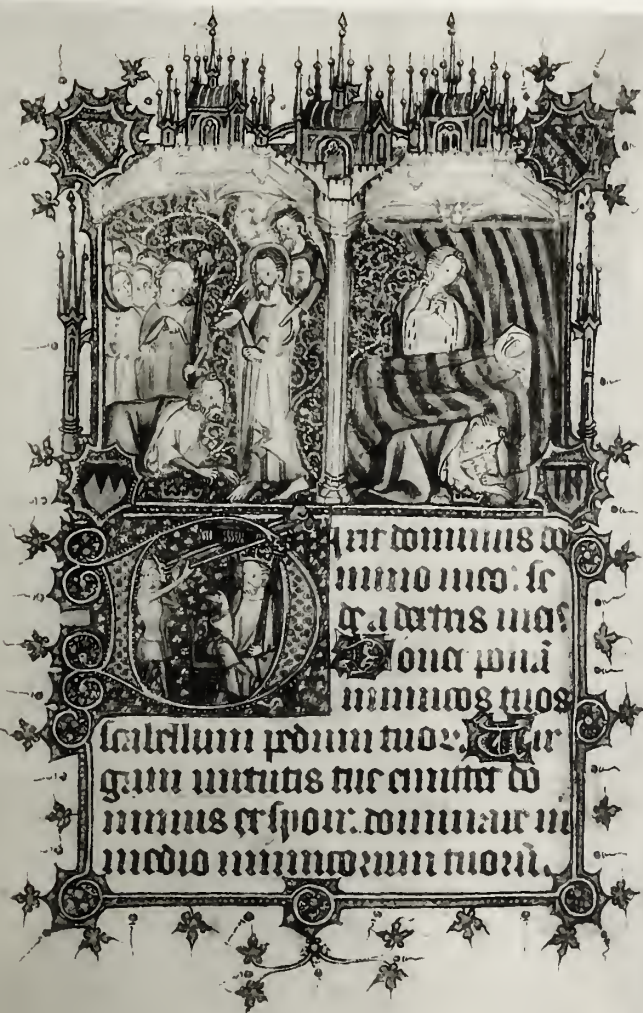 Dixit dominus do
mino meo: se
de a dextris meis.
Donec ponã
inimicos tuos
scabellum pedum tuoꝝ. Vir
gam uirtutis tue emittet do
minus ex syon: dominare in
medio inimicorum tuorũ.